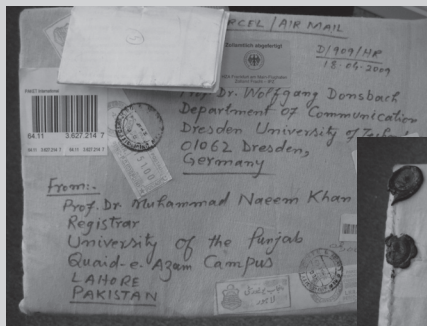 PARCEL/AIR MAIL
Zollamtlich abgefertigt
D/909/HR
18-04-2009
Prof Dr. Wolfgang Donsbach
Department of Communication
Dresden University of
01062 Dresden,
Germany
64.11 3.627 214 7
From:-
Prof. Dr. Muhammad Naeem Khan
Registrar
University of the Punjab
Quaid-e-Azam Campus
LAHORE
PAKISTAN